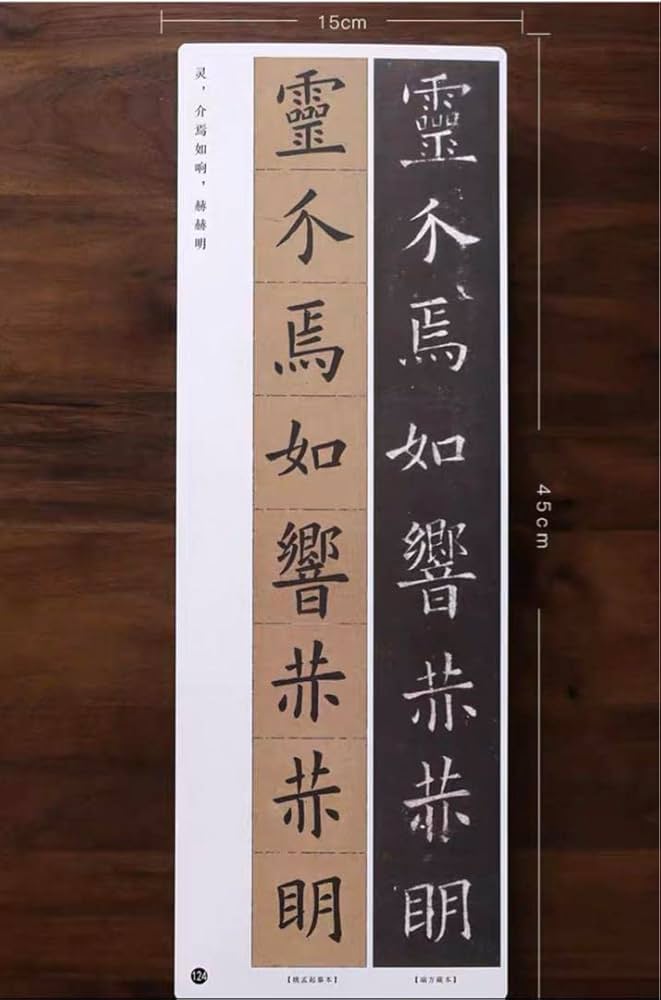 15cm
45cm
靈介焉如響赫赫眀
靈介焉如響赫赫眀
灵，介焉如响，赫赫明
【端方藏本】
【姚孟起摹本】
124